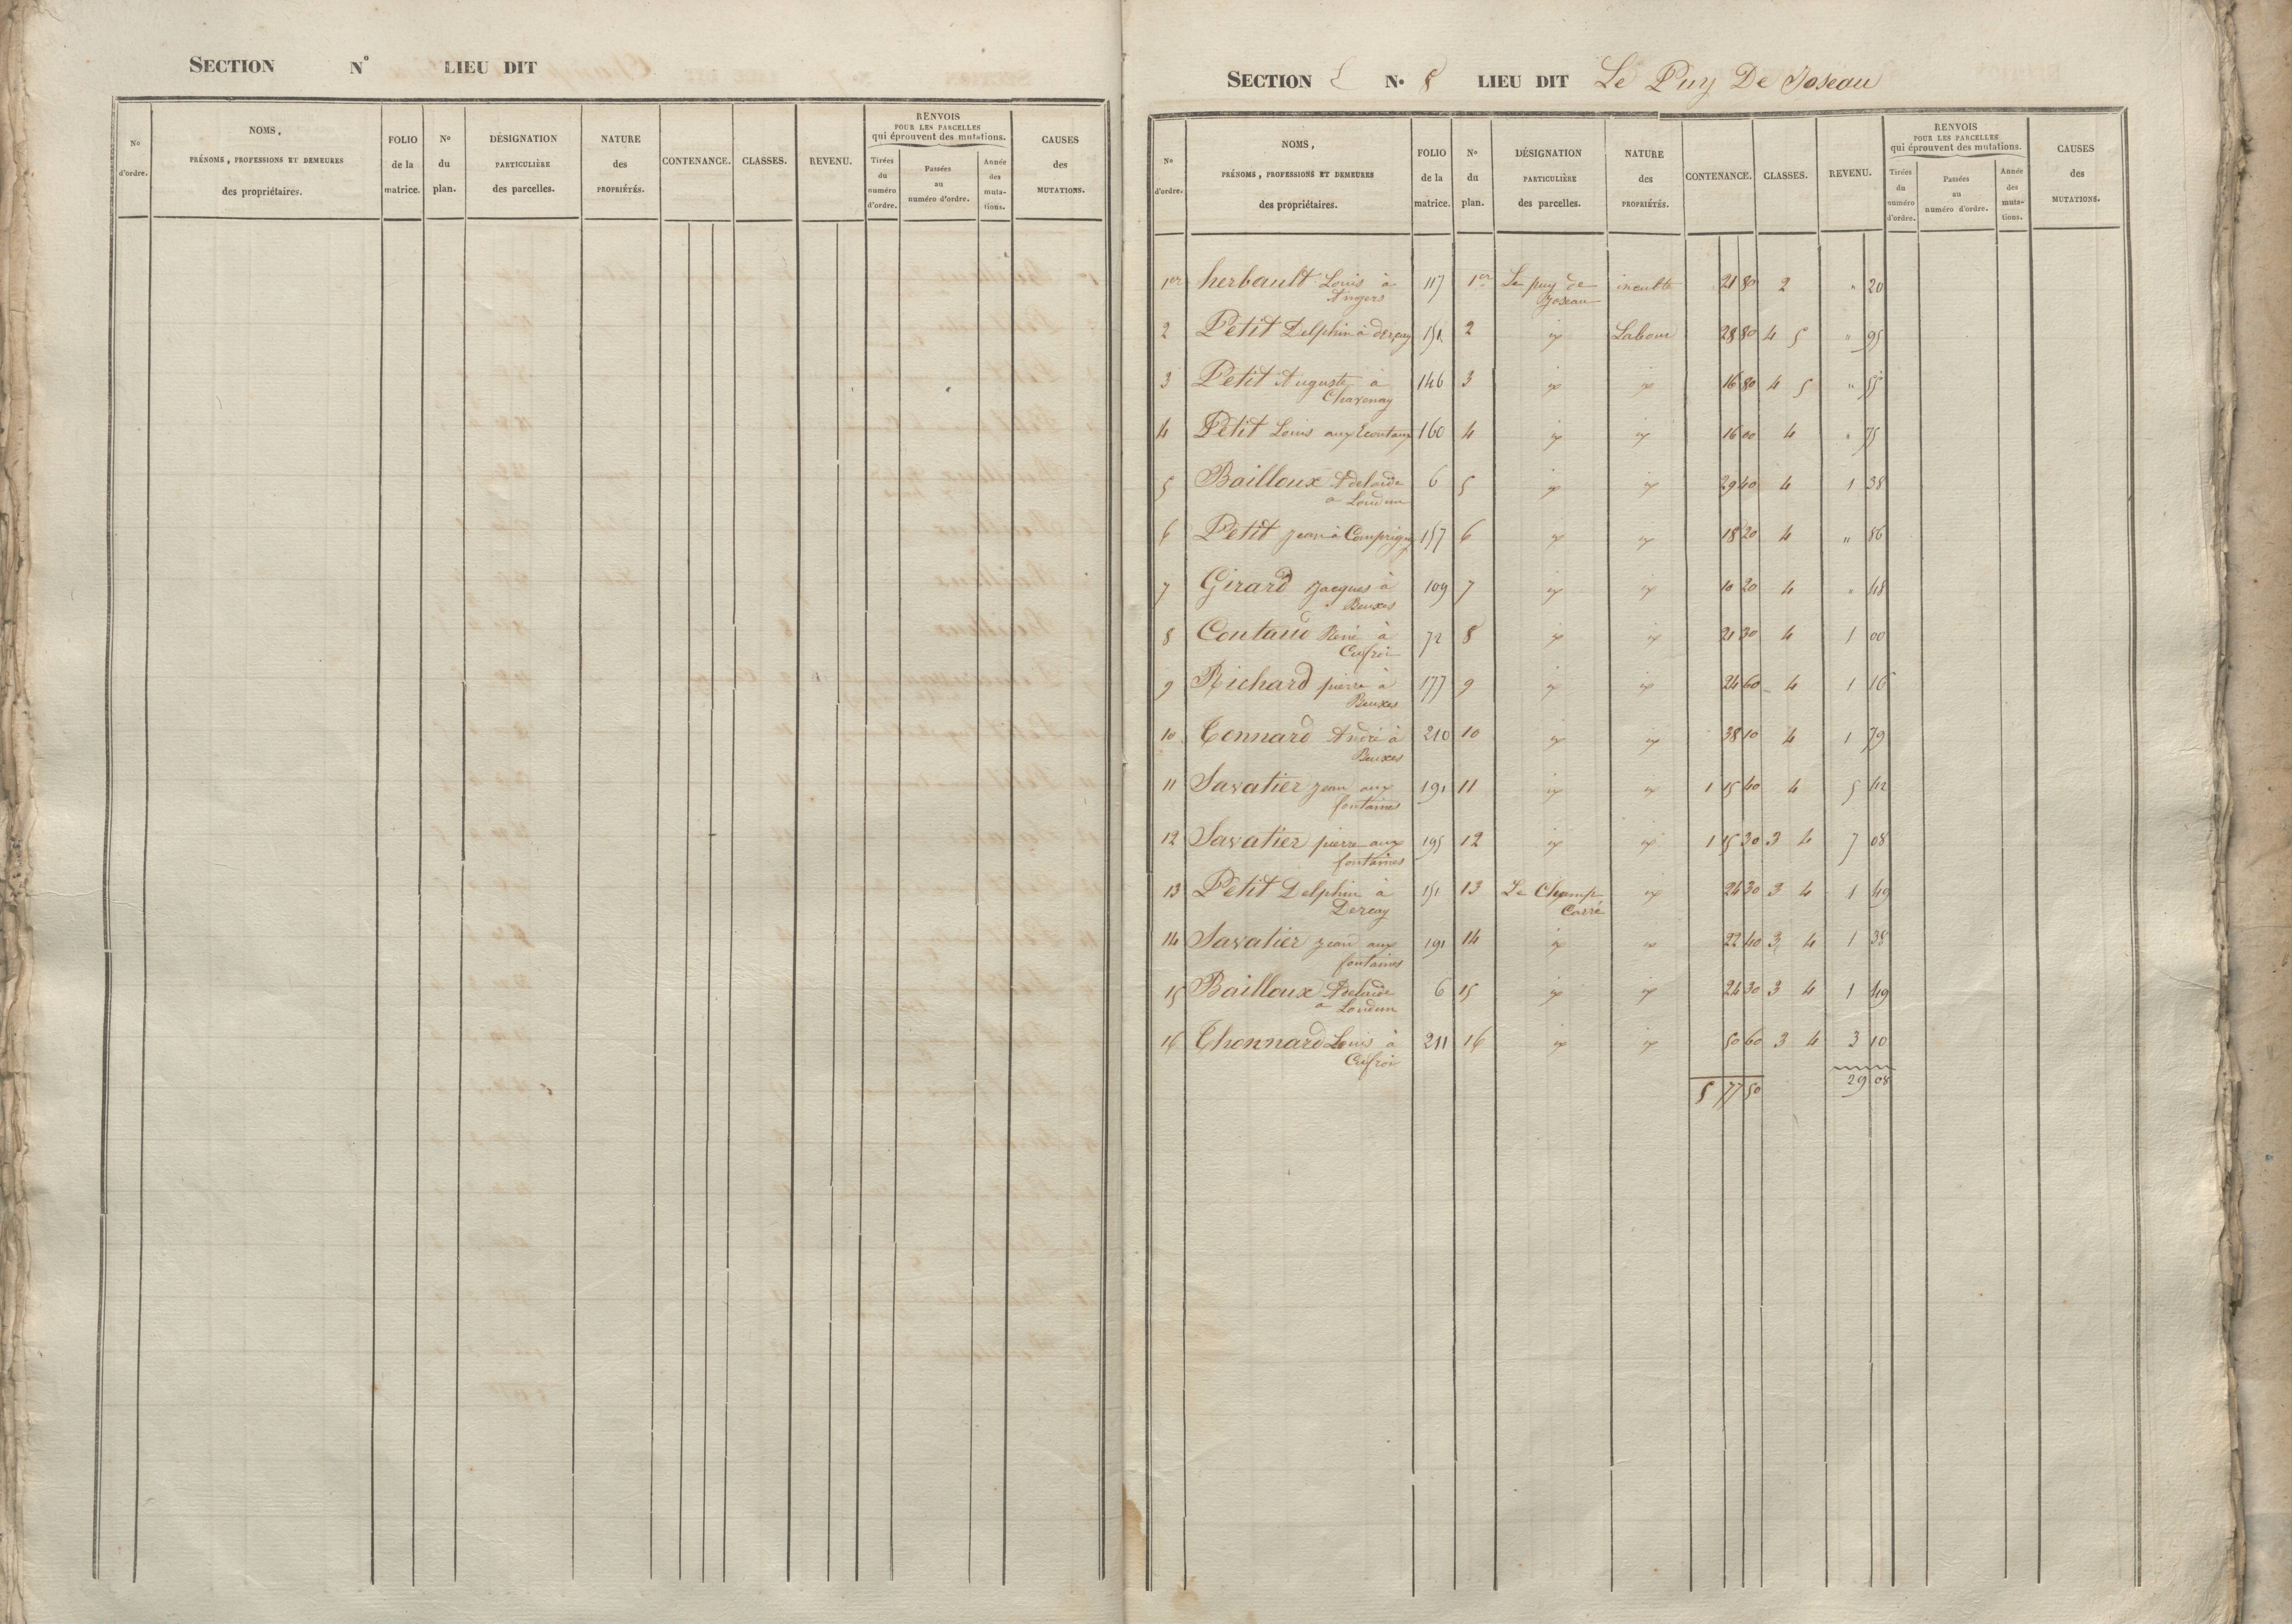 SECTION N° LIEU DIT
No d'ordre.
NOMS, PRÉNOMS, PROFESSIONS ET DEMEURES des propriétaires.
FOLIO de la matrice.
No du plan.
DÉSIGNATION PARTICULIÈRE des parcelles.
NATURE des PROPRIÉTÉS.
CONTENANCE.
CLASSES.
REVENU.
RENVOIS POUR LES PARCELLES qui éprouvent des mutations.
Tirées du numéro d'ordre.
Passées au numéro d'ordre.
Année des mutations.
CAUSES des MUTATIONS.
SECTION E No 8 LIEU DIT Le Puy De Joseau
No d'ordre.
NOMS, PRÉNOMS, PROFESSIONS ET DEMEURES des propriétaires.
FOLIO de la matrice.
No du plan.
DÉSIGNATION PARTICULIÈRE des parcelles.
NATURE des PROPRIÉTÉS.
CONTENANCE.
CLASSES.
REVENU.
RENVOIS POUR LES PARCELLES qui éprouvent des mutations.
Tirées du numéro d'ordre.
Passées au numéro d'ordre.
Année des mutations.
CAUSES des MUTATIONS.
1er herbault Louis à 117 1er Le puy de inculte 21 80 2 " 20
Angers Joseau
2 Petit Delphin à derçay 151 2 id Labour 28 80 4 5 " 95
3 Petit Auguste à 146 3 id id 16 80 4 5 " 55
Chavenay
4 Petit Louis aux 160 4 id id 16 00 4 " 75
5 Bailloux Adelaïde 6 5 id id 29 40 4 1 38
a Loudun
6 Petit jean à 157 6 id id 18 20 4 " 86
7 Girard Jacques à 109 7 id id 10 20 4 " 48
Beuxes
8 Coutand René à 72 8 id id 21 30 4 1 00
9 Richard pierre à 177 9 id id 24 60 4 1 16
Beuxes
10 Tonnard André à 210 10 id id 38 10 4 1 79
Beuxes
11 Savatier jean aux 191 11 id id 1 15 40 4 5 42
fontaines
12 Savatier pierre aux 195 12 id id 1 15 30 3 4 7 08
fontaines
13 Petit Delphin à 151 13 Le Champ id 24 30 3 4 1 49
Dercay Carré
14 Savatier jean aux 191 14 id id 22 40 3 4 1 38
fontaines
15 Bailloux Adelaïde 6 15 id id 24 30 3 4 1 49
a Loudun
16 Thonnard Louis à 211 16 id id 50 60 3 4 3 10
5 77 50 29 08